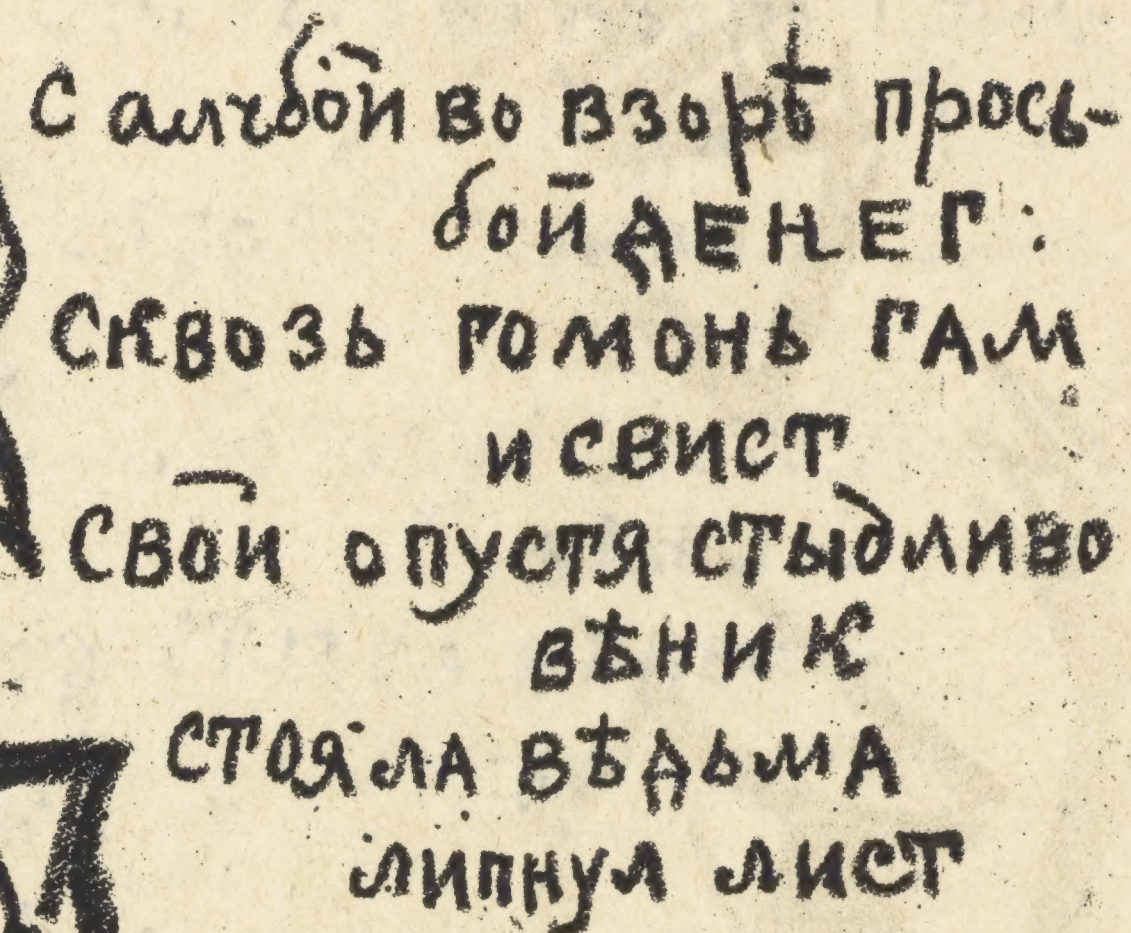 С алчбой во взорѣ прось-
бой ДЕНЕГ:
Сквозь гомонь гам
и свист
Свой опустя стыдливо
вѣник
стояла вѣдьма
липнул лист